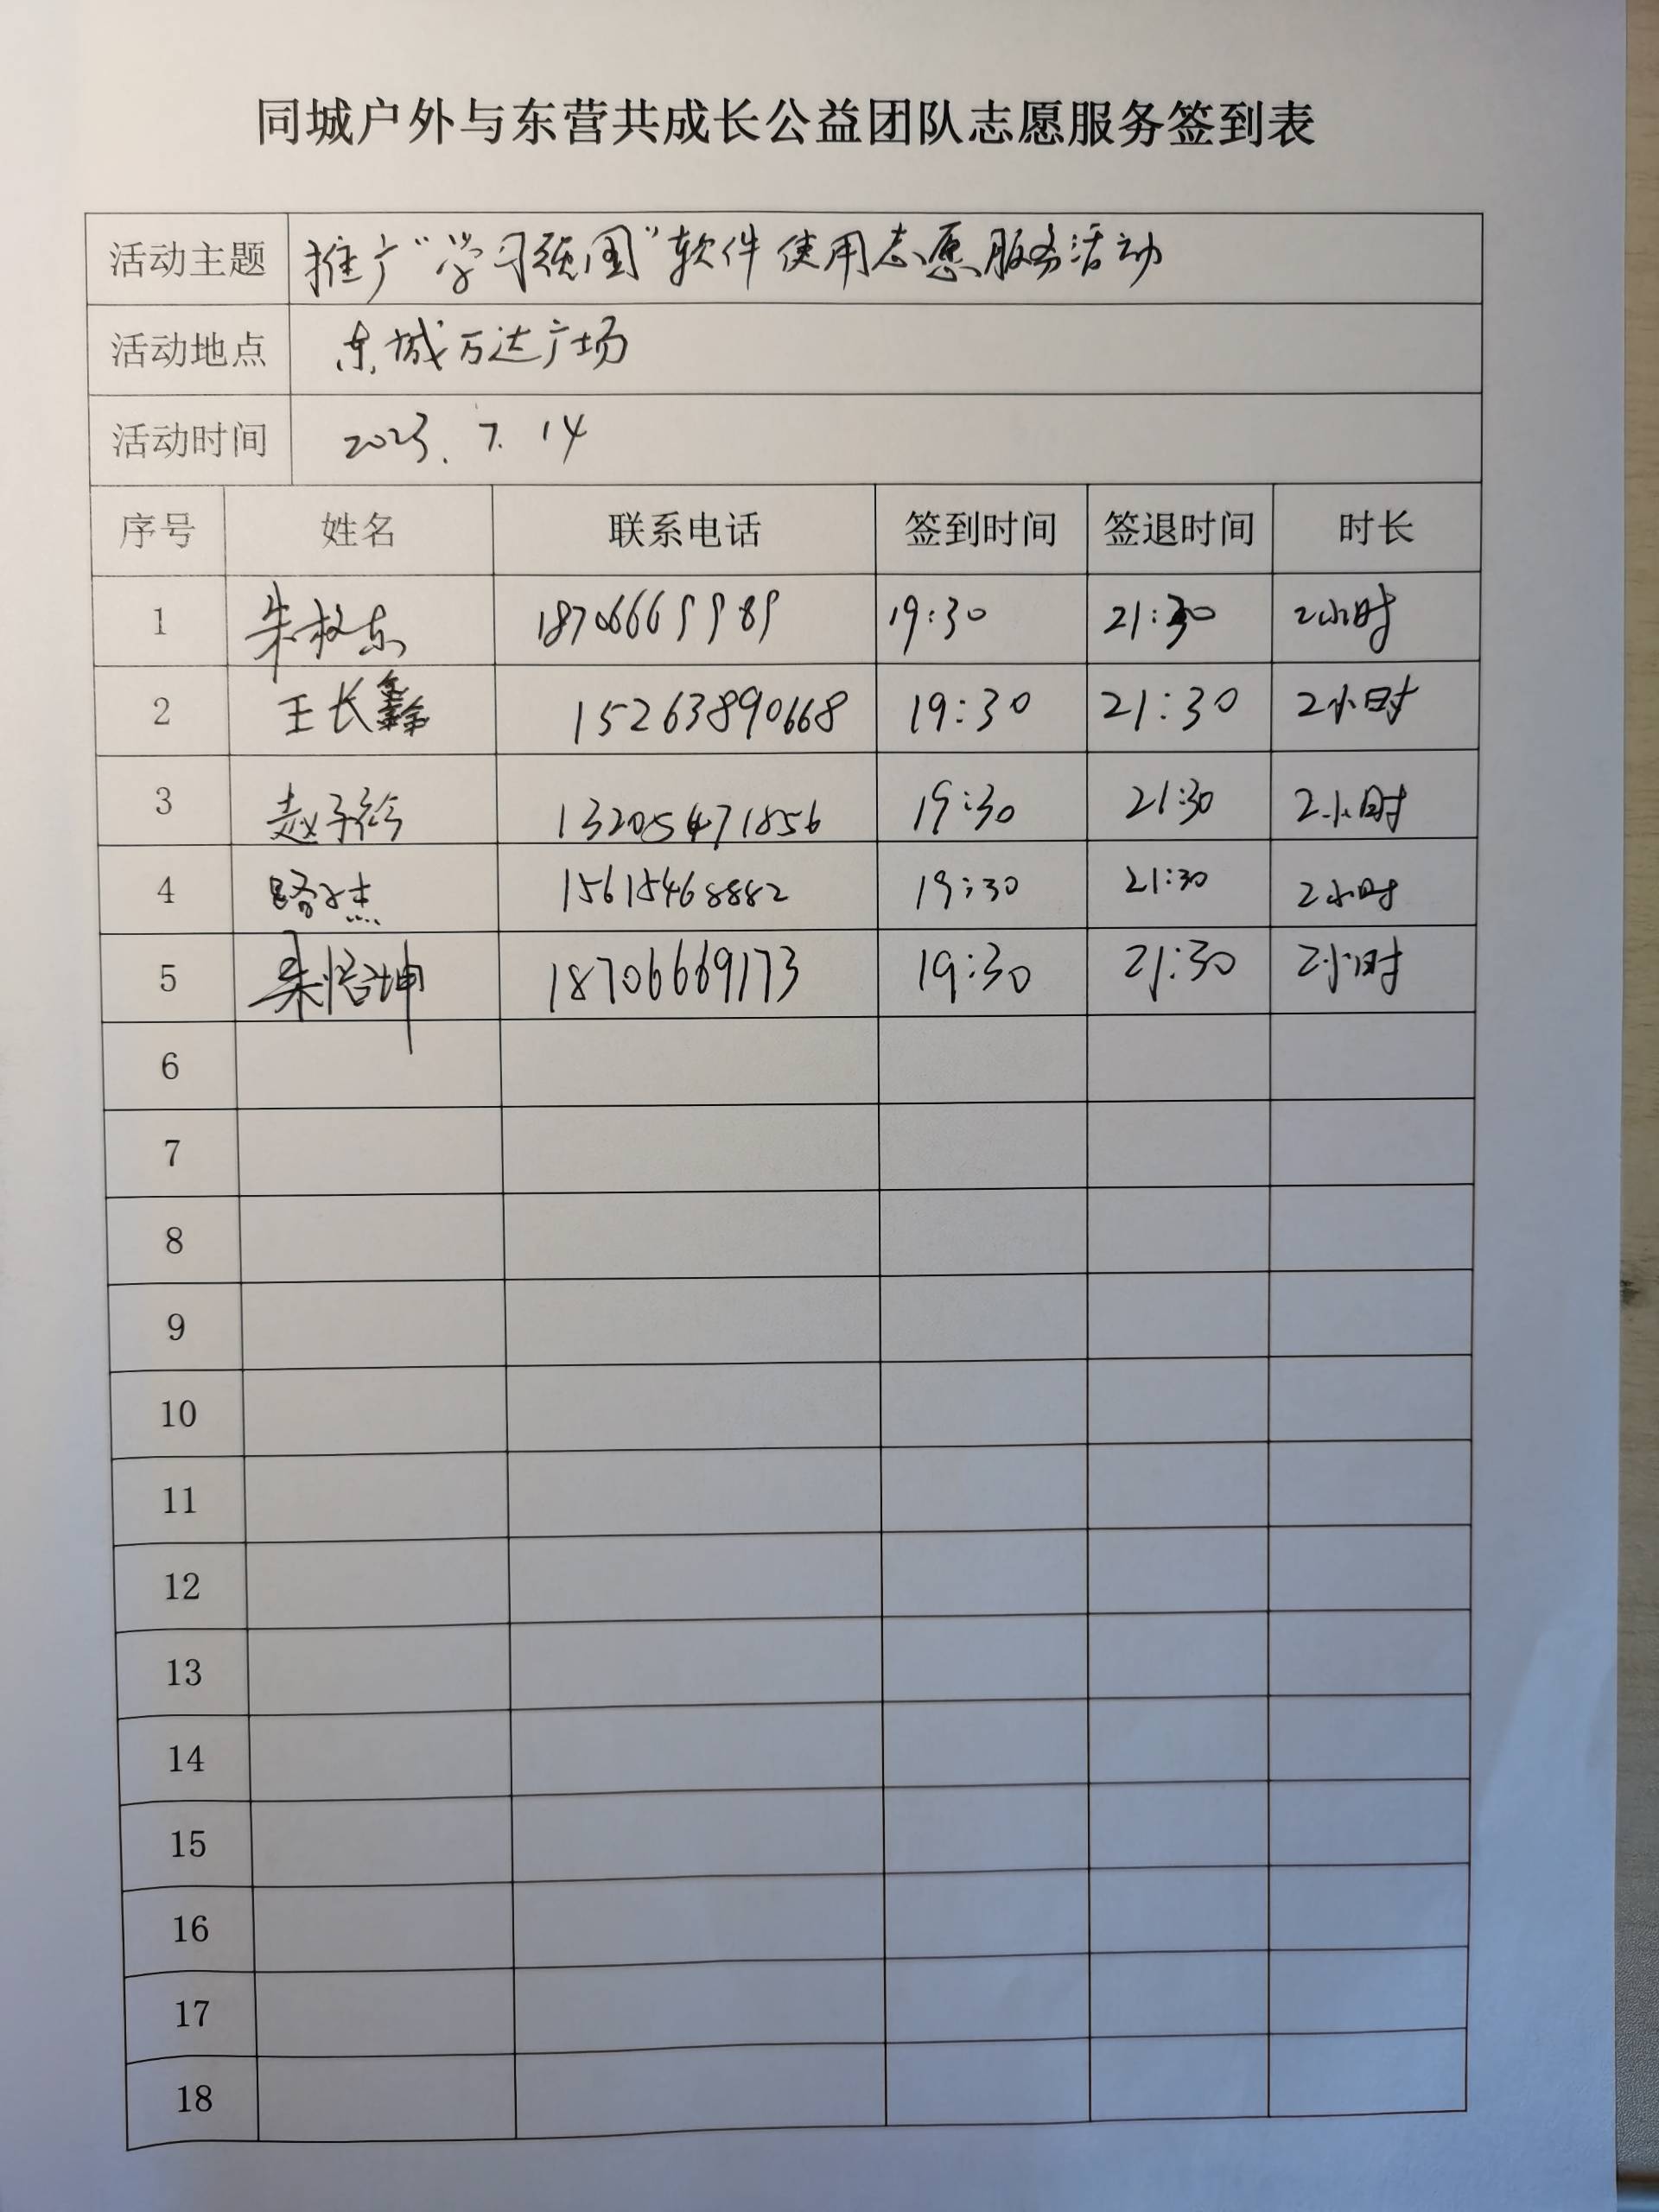 同城户外与东营共成长公益团队志愿服务签到表
活动主题 推广“学习强国”软件使用志愿服务活动
活动地点 东城万达广场
活动时间 2023.7.14
序号 姓名 联系电话 签到时间 签退时间 时长
1 朱 19:30 21:30 2小时
2 王长鑫 15263890668 19:30 21:30 2小时
3 赵子 13205471856 19:30 21:30 2小时
4 路杰 15615468882 19:30 21:30 2小时
5 朱恺坤 18706669173 19:30 21:30 2小时
6
7
8
9
10
11
12
13
14
15
16
17
18